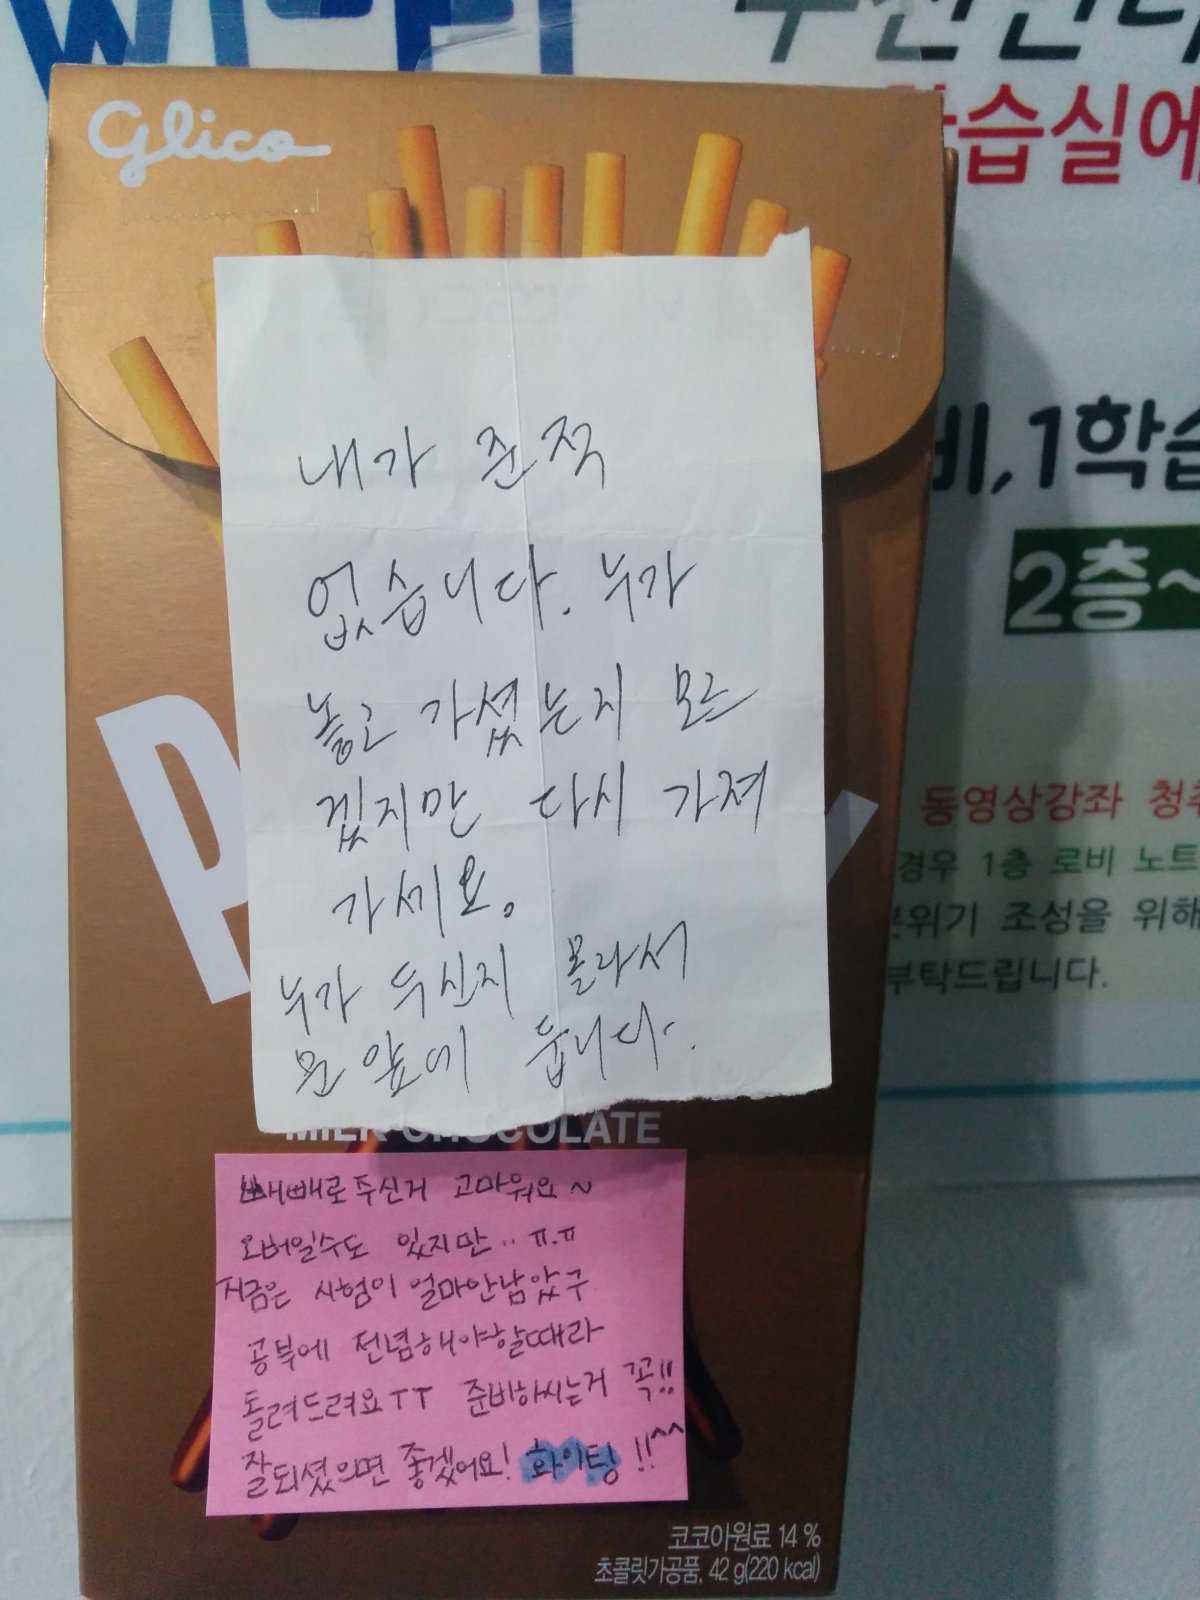 Wi-Fi
Glico
습실에
비,1학습
2층~
내가 준적
없습니다. 누가
놓고 가셨는지 모르
겠지만 다시 가져
가세요.
누가 두신지 몰라서
문 앞에 둡니다.
동영상강좌 청
경우 1층 로비 노트
위기 조성을 위해
부탁드립니다.
P
MILK CHOCOLATE
빼빼로주신거 고마워요~
오버일수도 있지만.. ㅠ.ㅠ
지금은 시험이 얼마안남았구
공부에 전념해야할때라
돌려드려요ㅜㅜ 준비하시는거 꼭!!
잘되셨으면 좋겠어요! 화이팅!!^^
코코아원료 14 %
초콜릿가공품, 42 g(220 kcal)